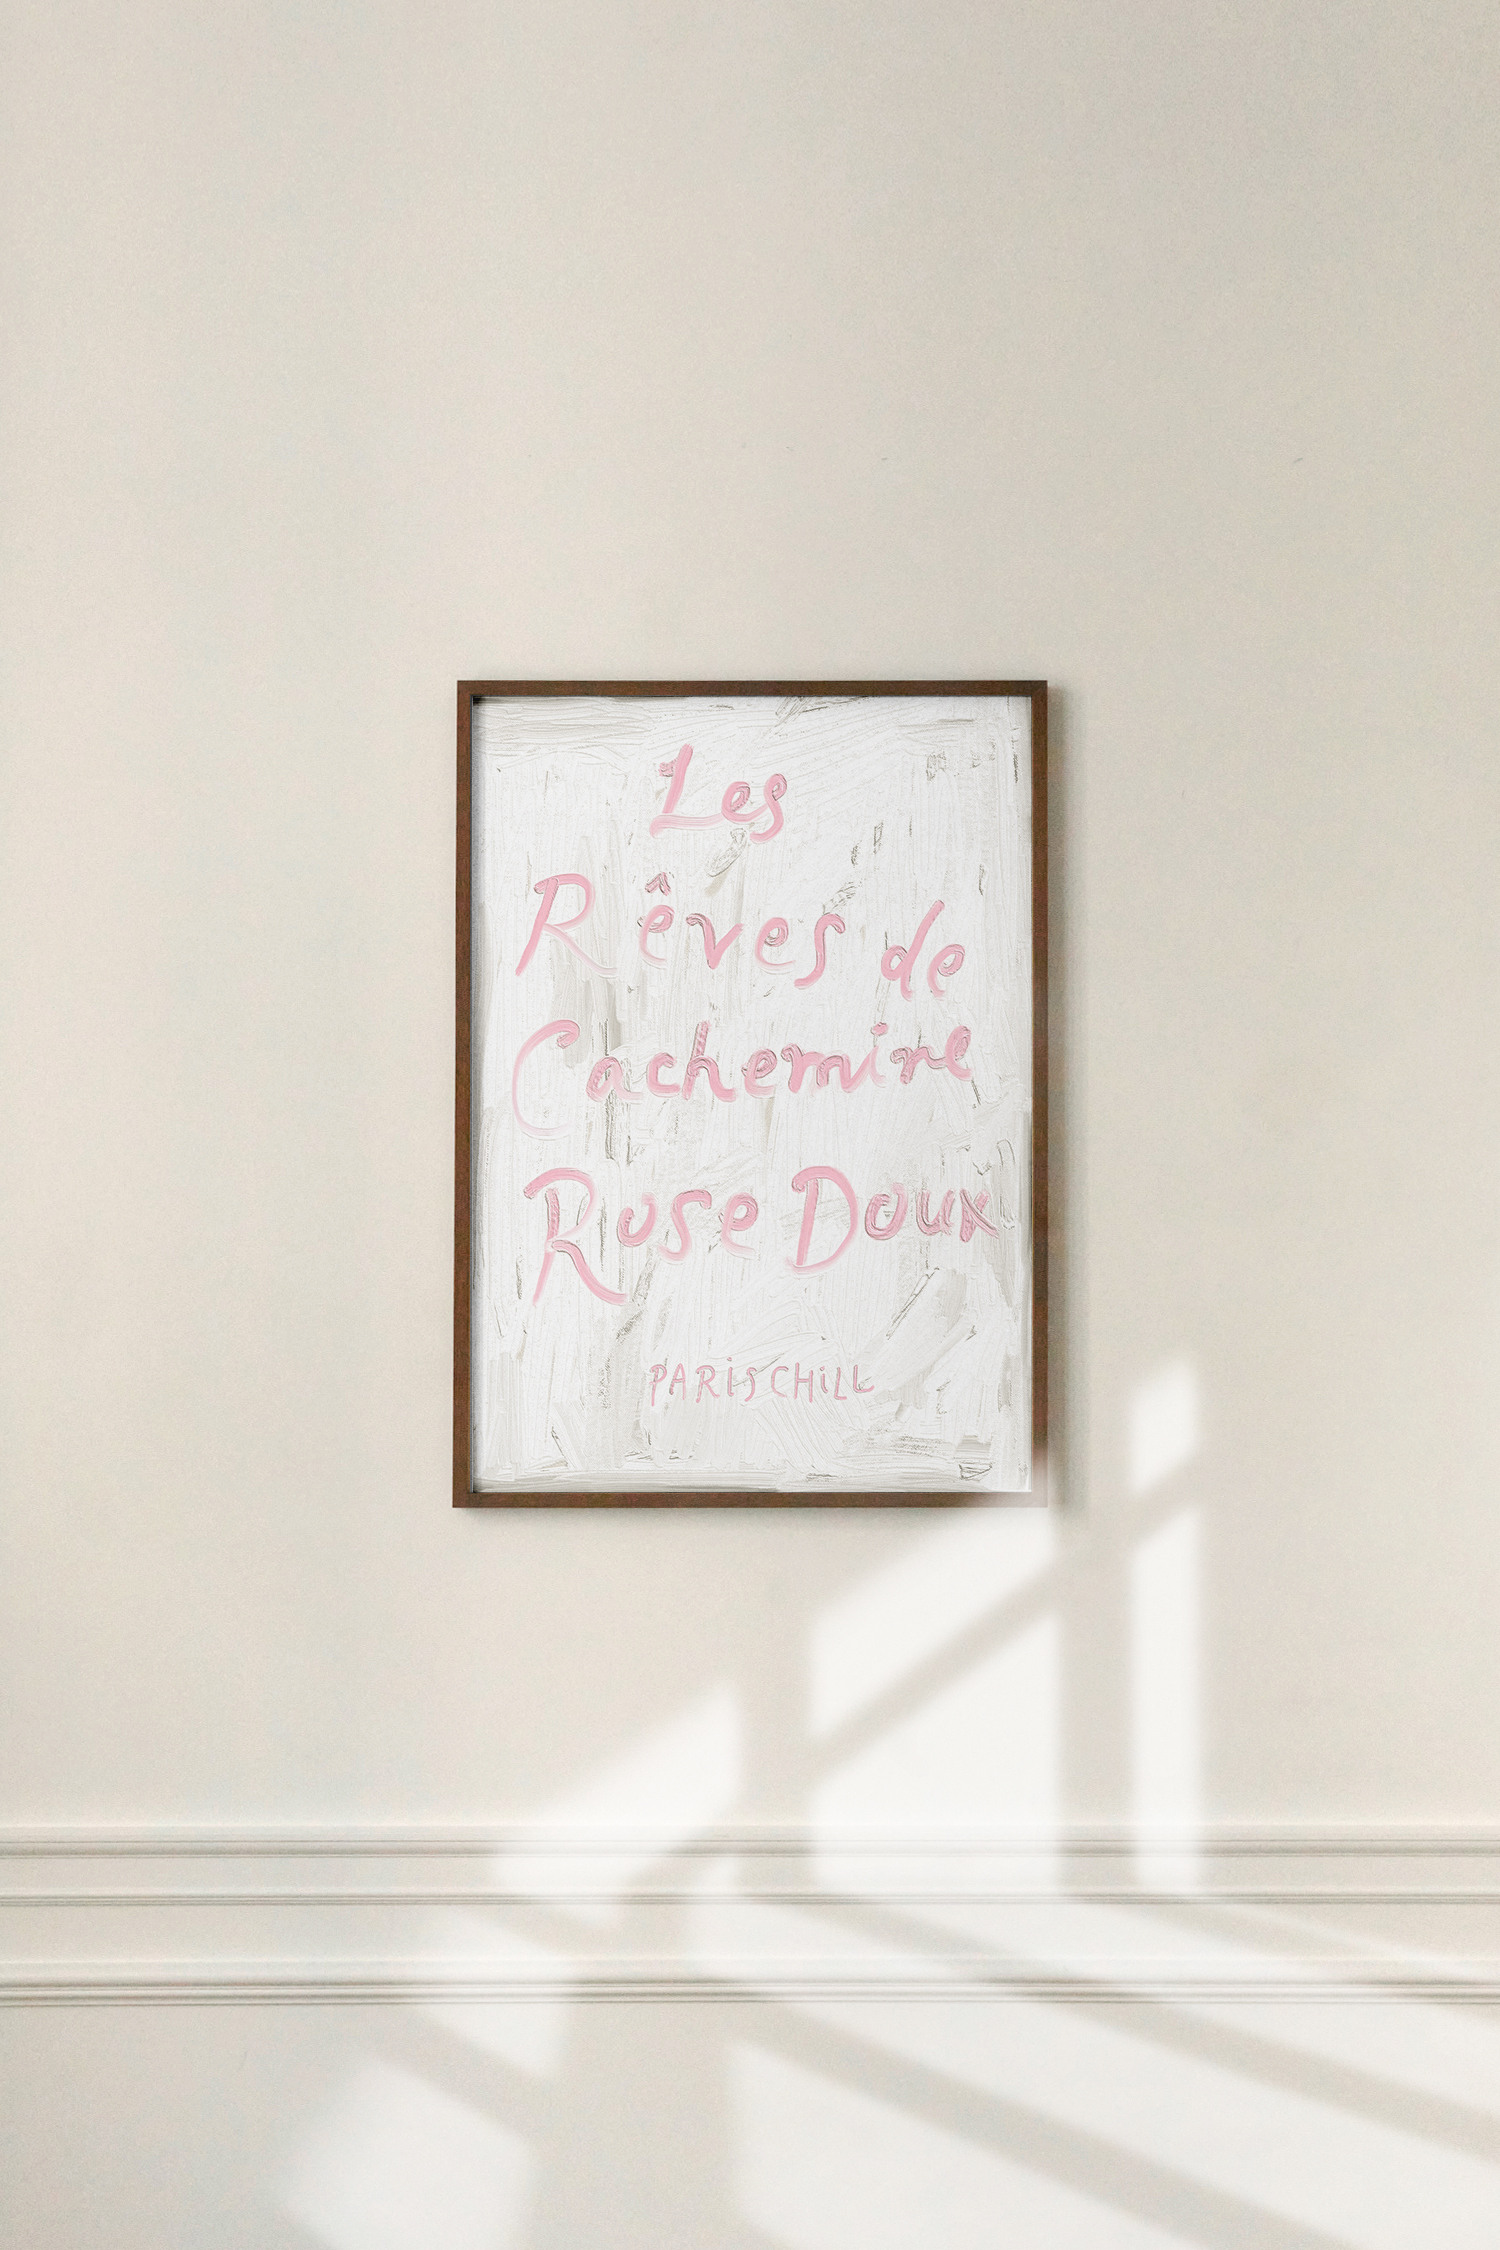 Les
Rêves de
Cachemire
Rose Doux
PARiSCHiLL